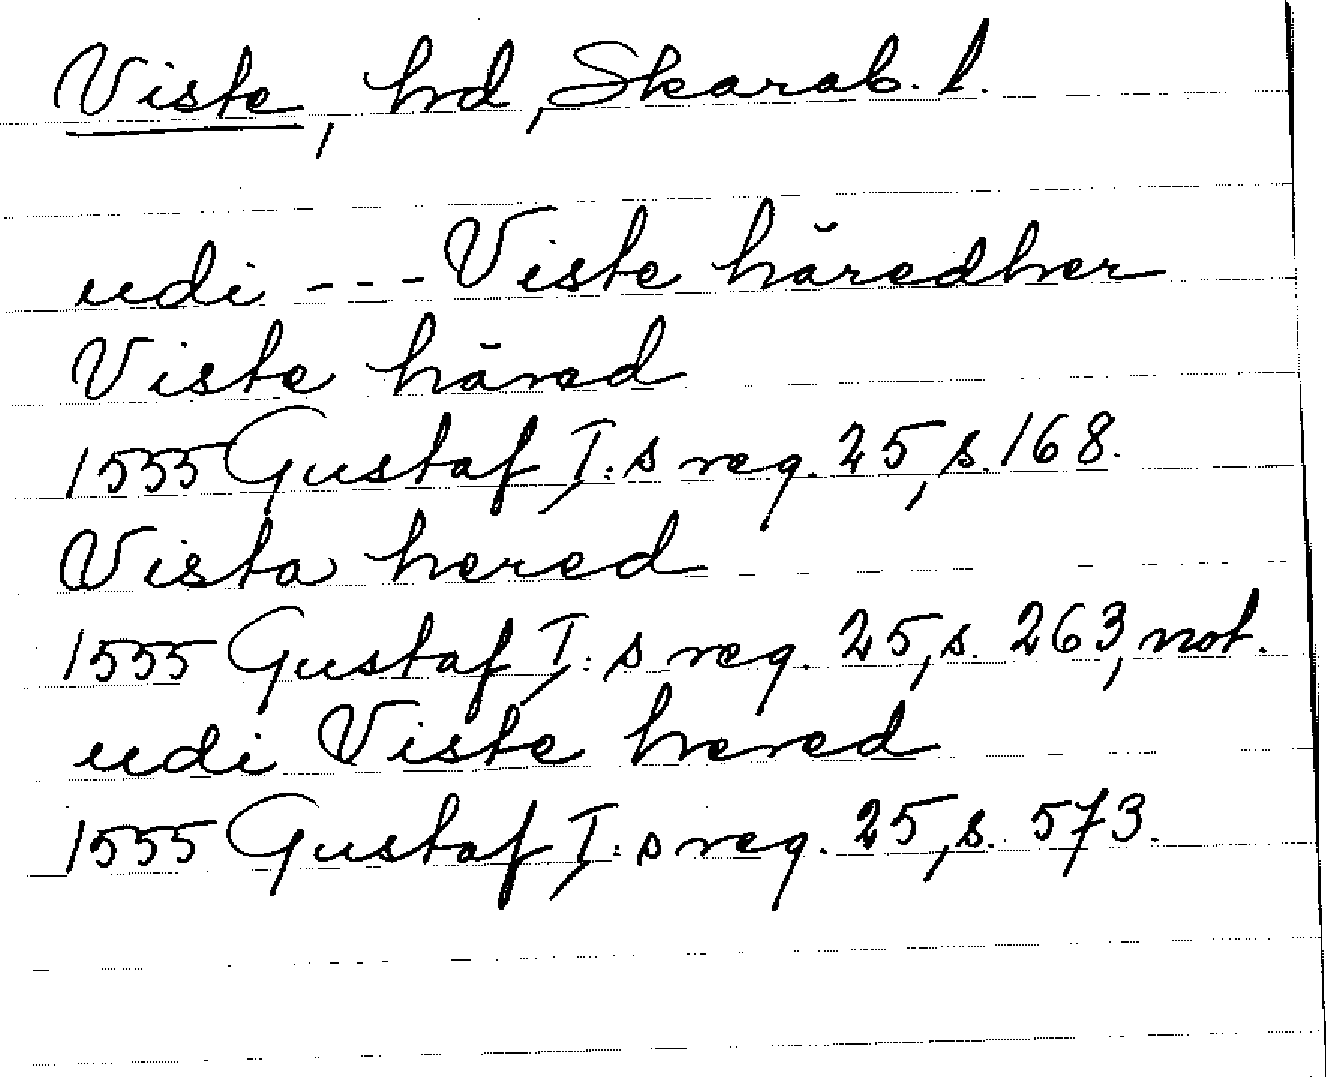 Viste, hd, Skarab. l.
udi --- Viste häredher
Viste häred
1555 Gustaf I:s reg. 25, s. 168.
Vista hered
1555 Gustaf I:s reg. 25, s. 263, not.
udi Viste hered
1555 Gustaf I:s reg. 25, s. 573.